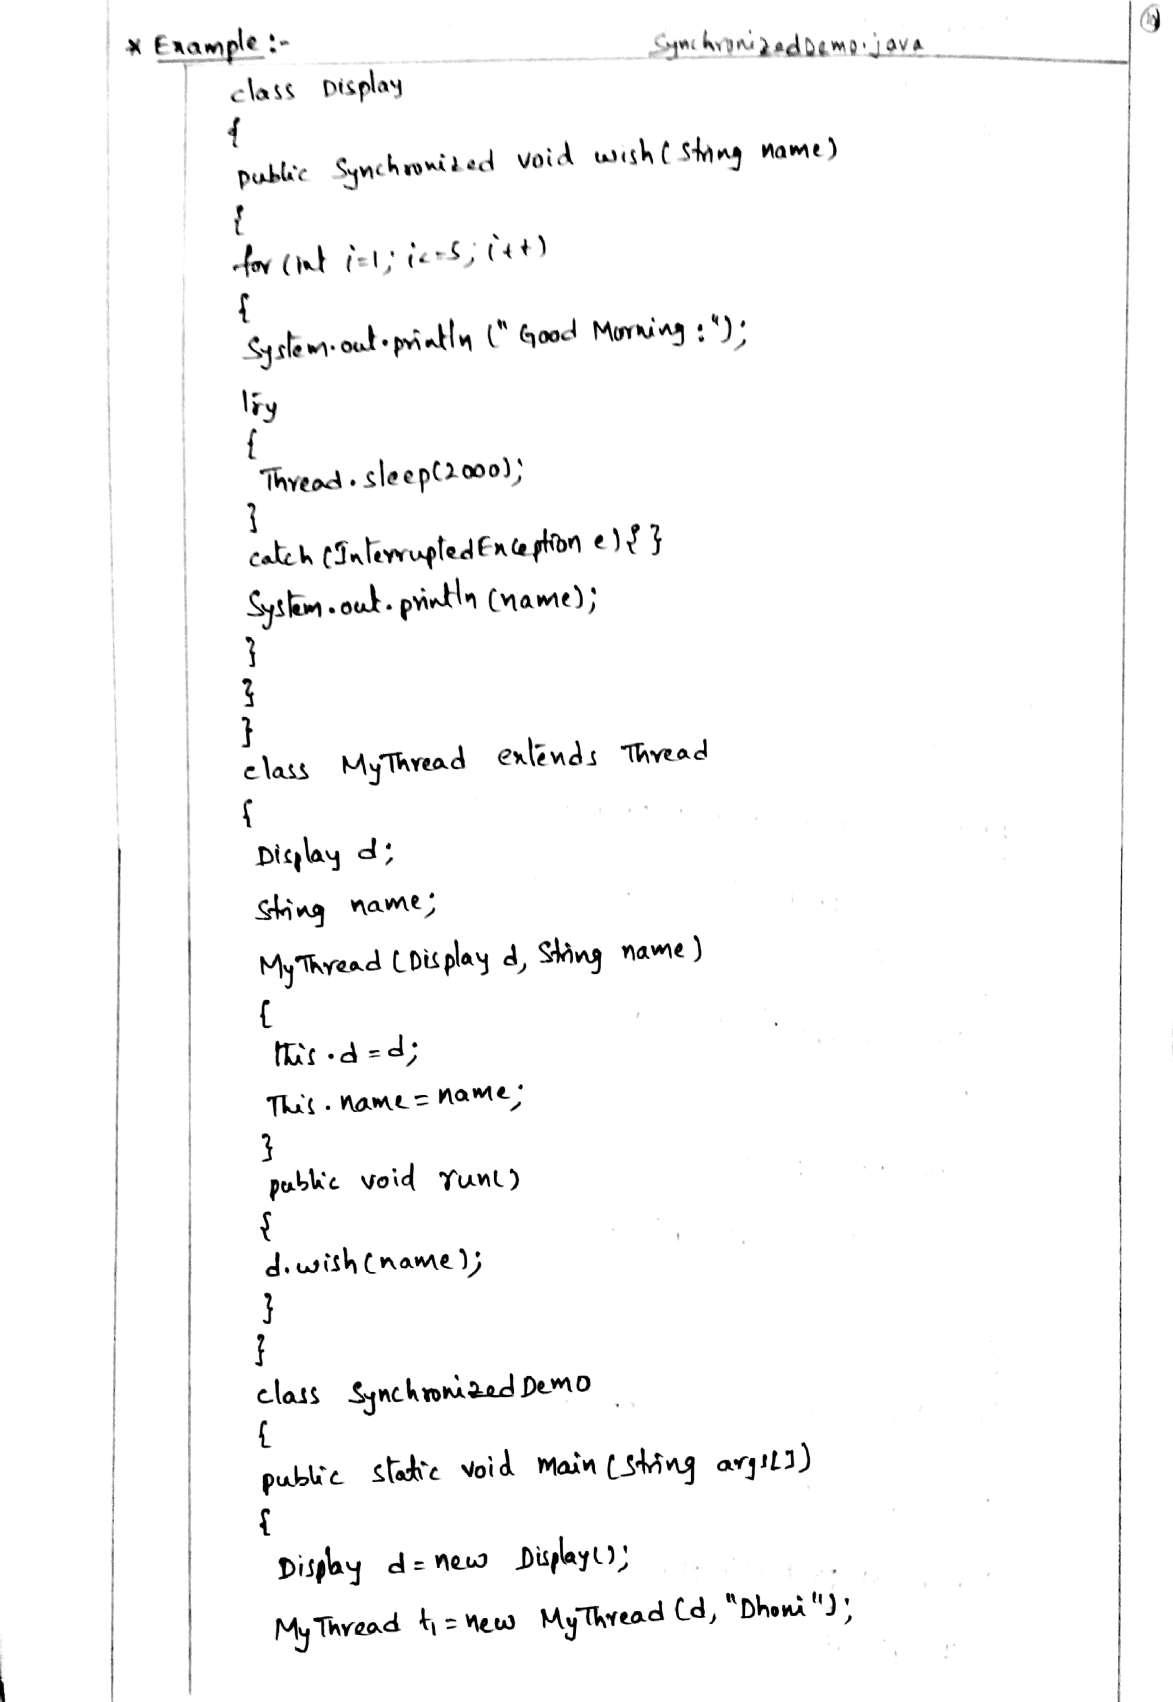 * Example :- SynchronizedDemo.java
class Display
{
public Synchronized void wish(String name)
{
for(int i=1; i<=5; i++)
{
System.out.println("Good Morning :");
try
{
Thread.sleep(2000);
}
catch(InterruptedException e){}
System.out.println(name);
}
}
}
class MyThread extends Thread
{
Display d;
String name;
MyThread(Display d, String name)
{
this.d=d;
This.name=name;
}
public void run()
{
d.wish(name);
}
}
class SynchronizedDemo
{
public static void main(String args[])
{
Display d=new Display();
MyThread t1=new MyThread(d,"Dhoni");